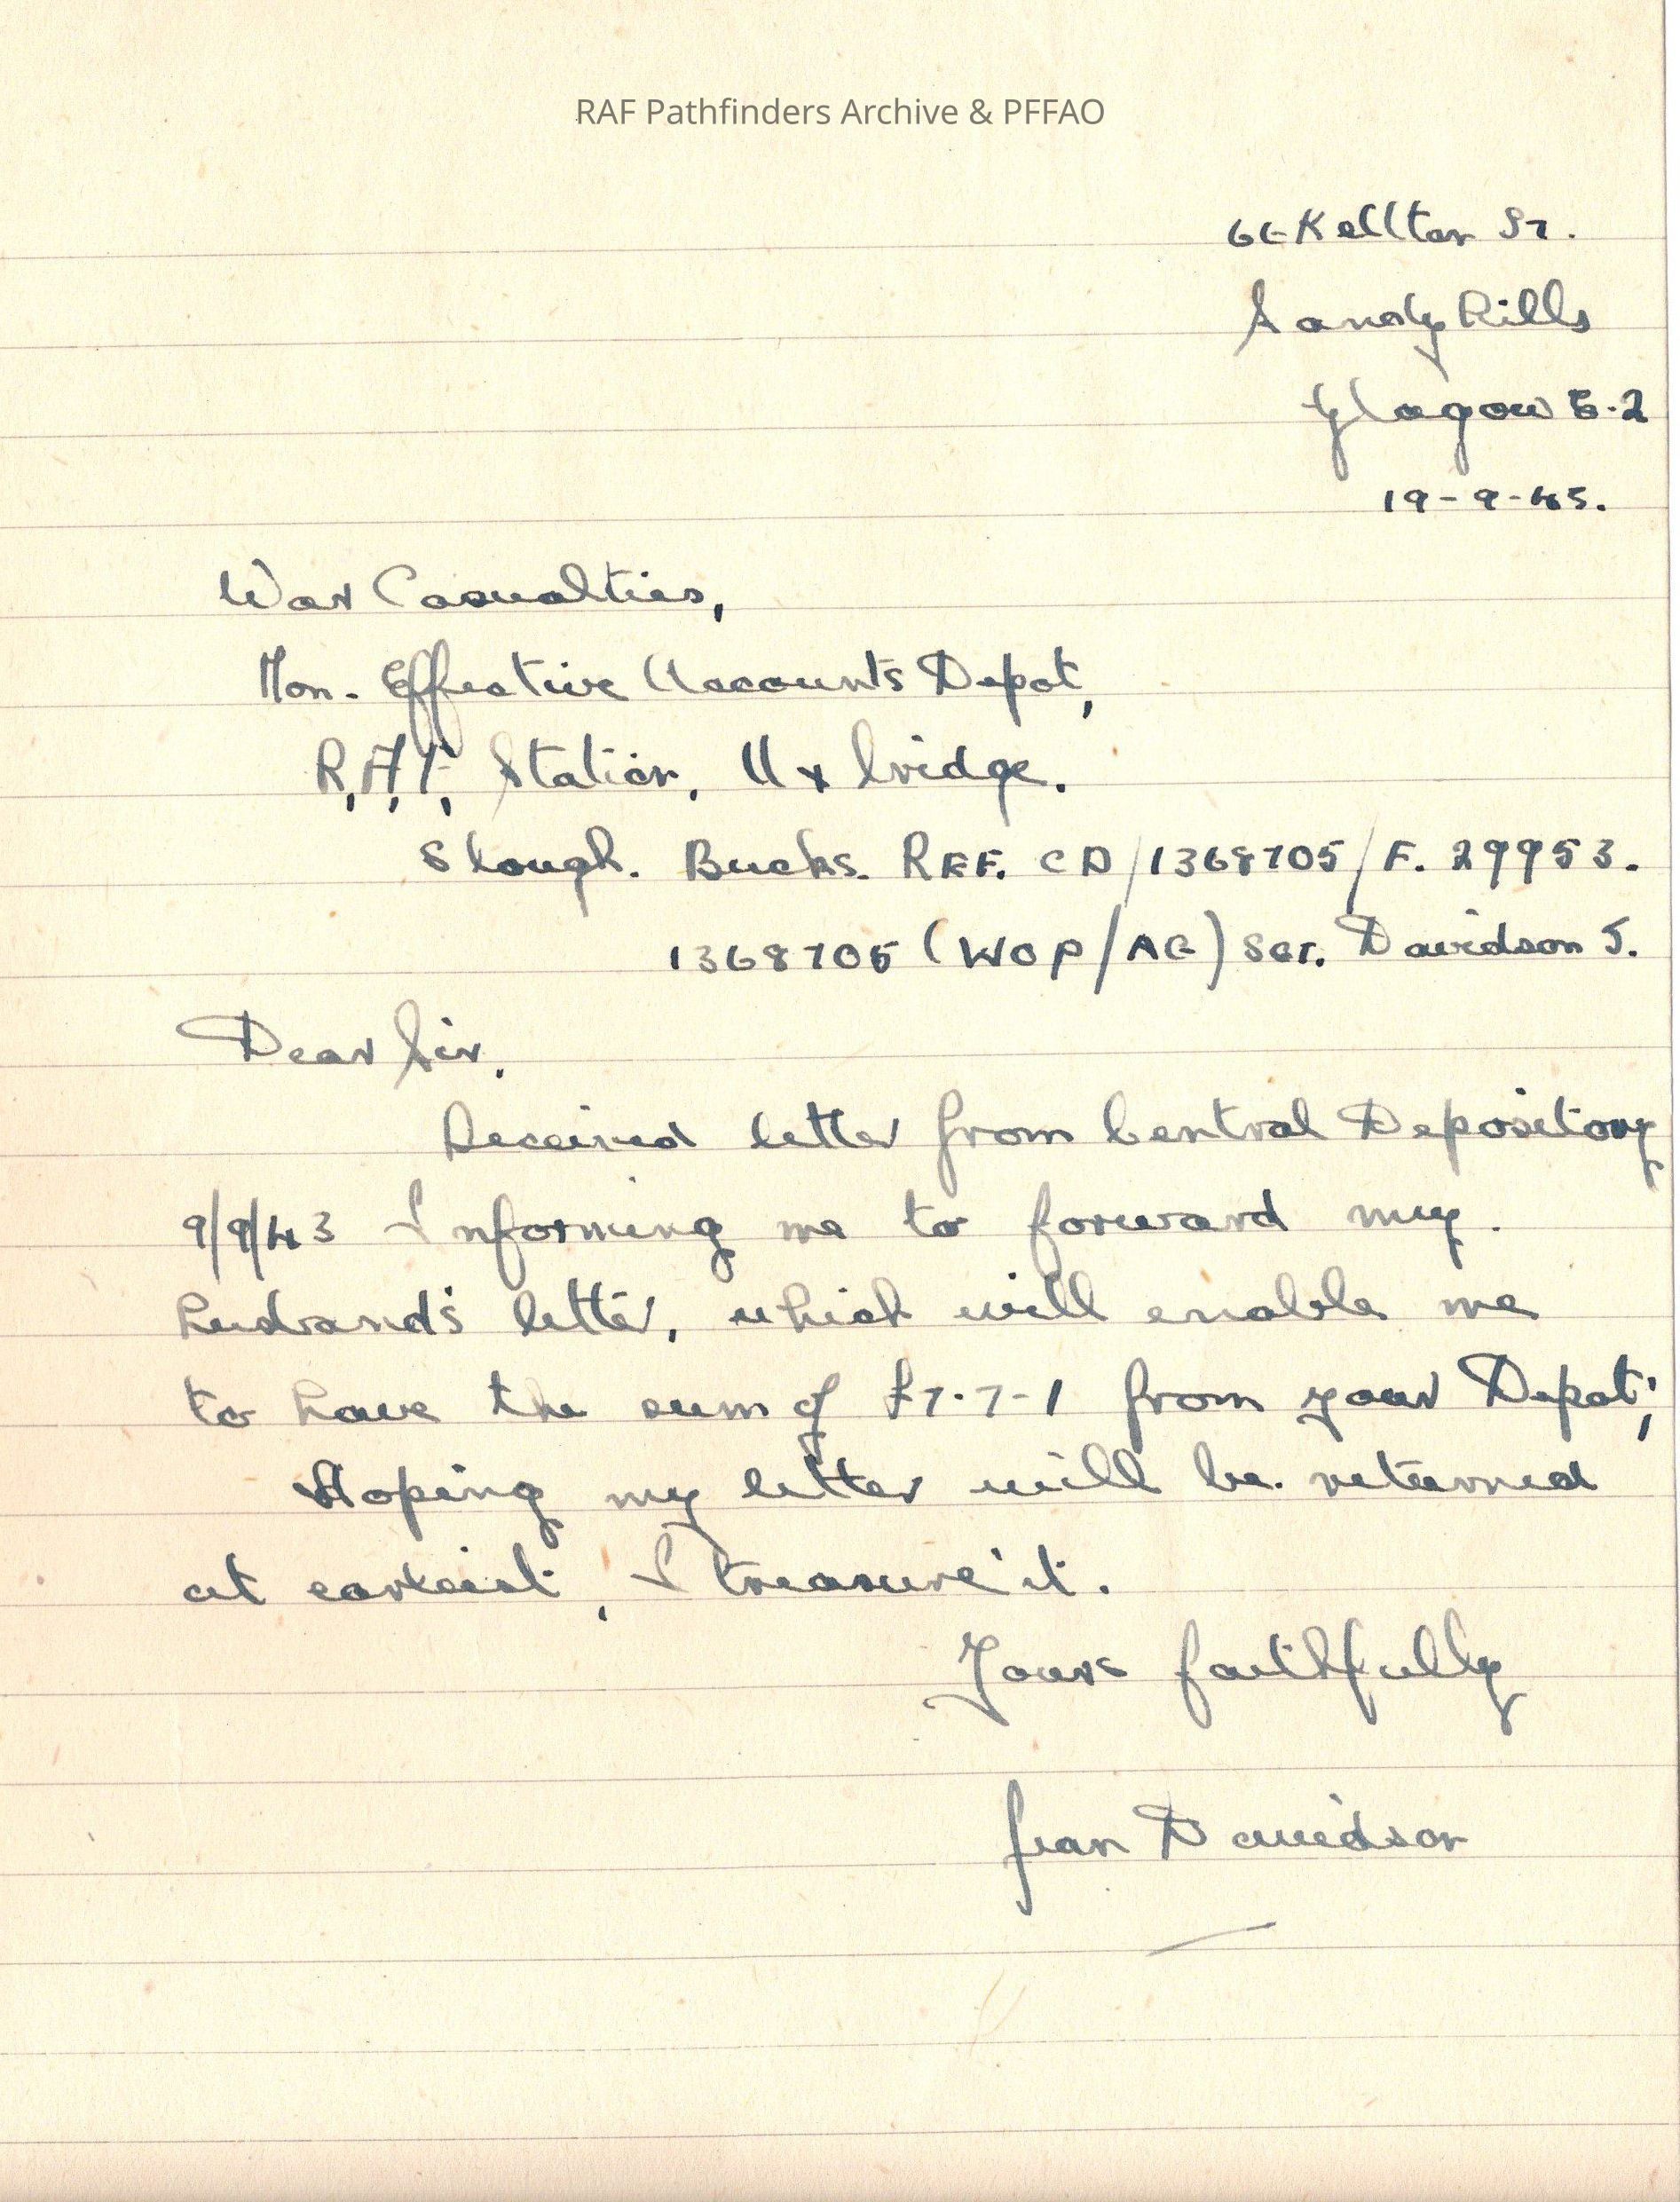 RAF Pathfinders Archive & PFFAO
66 Kellter St.
Sandyhills
Glagow E.2
19-9-43.
War Casualties,
Non-Effective Accounts Depot,
R.A.F. Station, Uxbridge.
Slough. Bucks. REF. CD/1368705/F. 29953.
1368705 (WOP/AG) SGT. Davidson J.
Dear Sir,
Received letter from Central Depository
9/9/43 Informing me to forward my.
husband's letter, which will enable me
to have the sum of £7-7-1 from your Depot;
Hoping my letter will be. returned
at earleist, I treasure it.
Yours faithfully
Jean Davidson